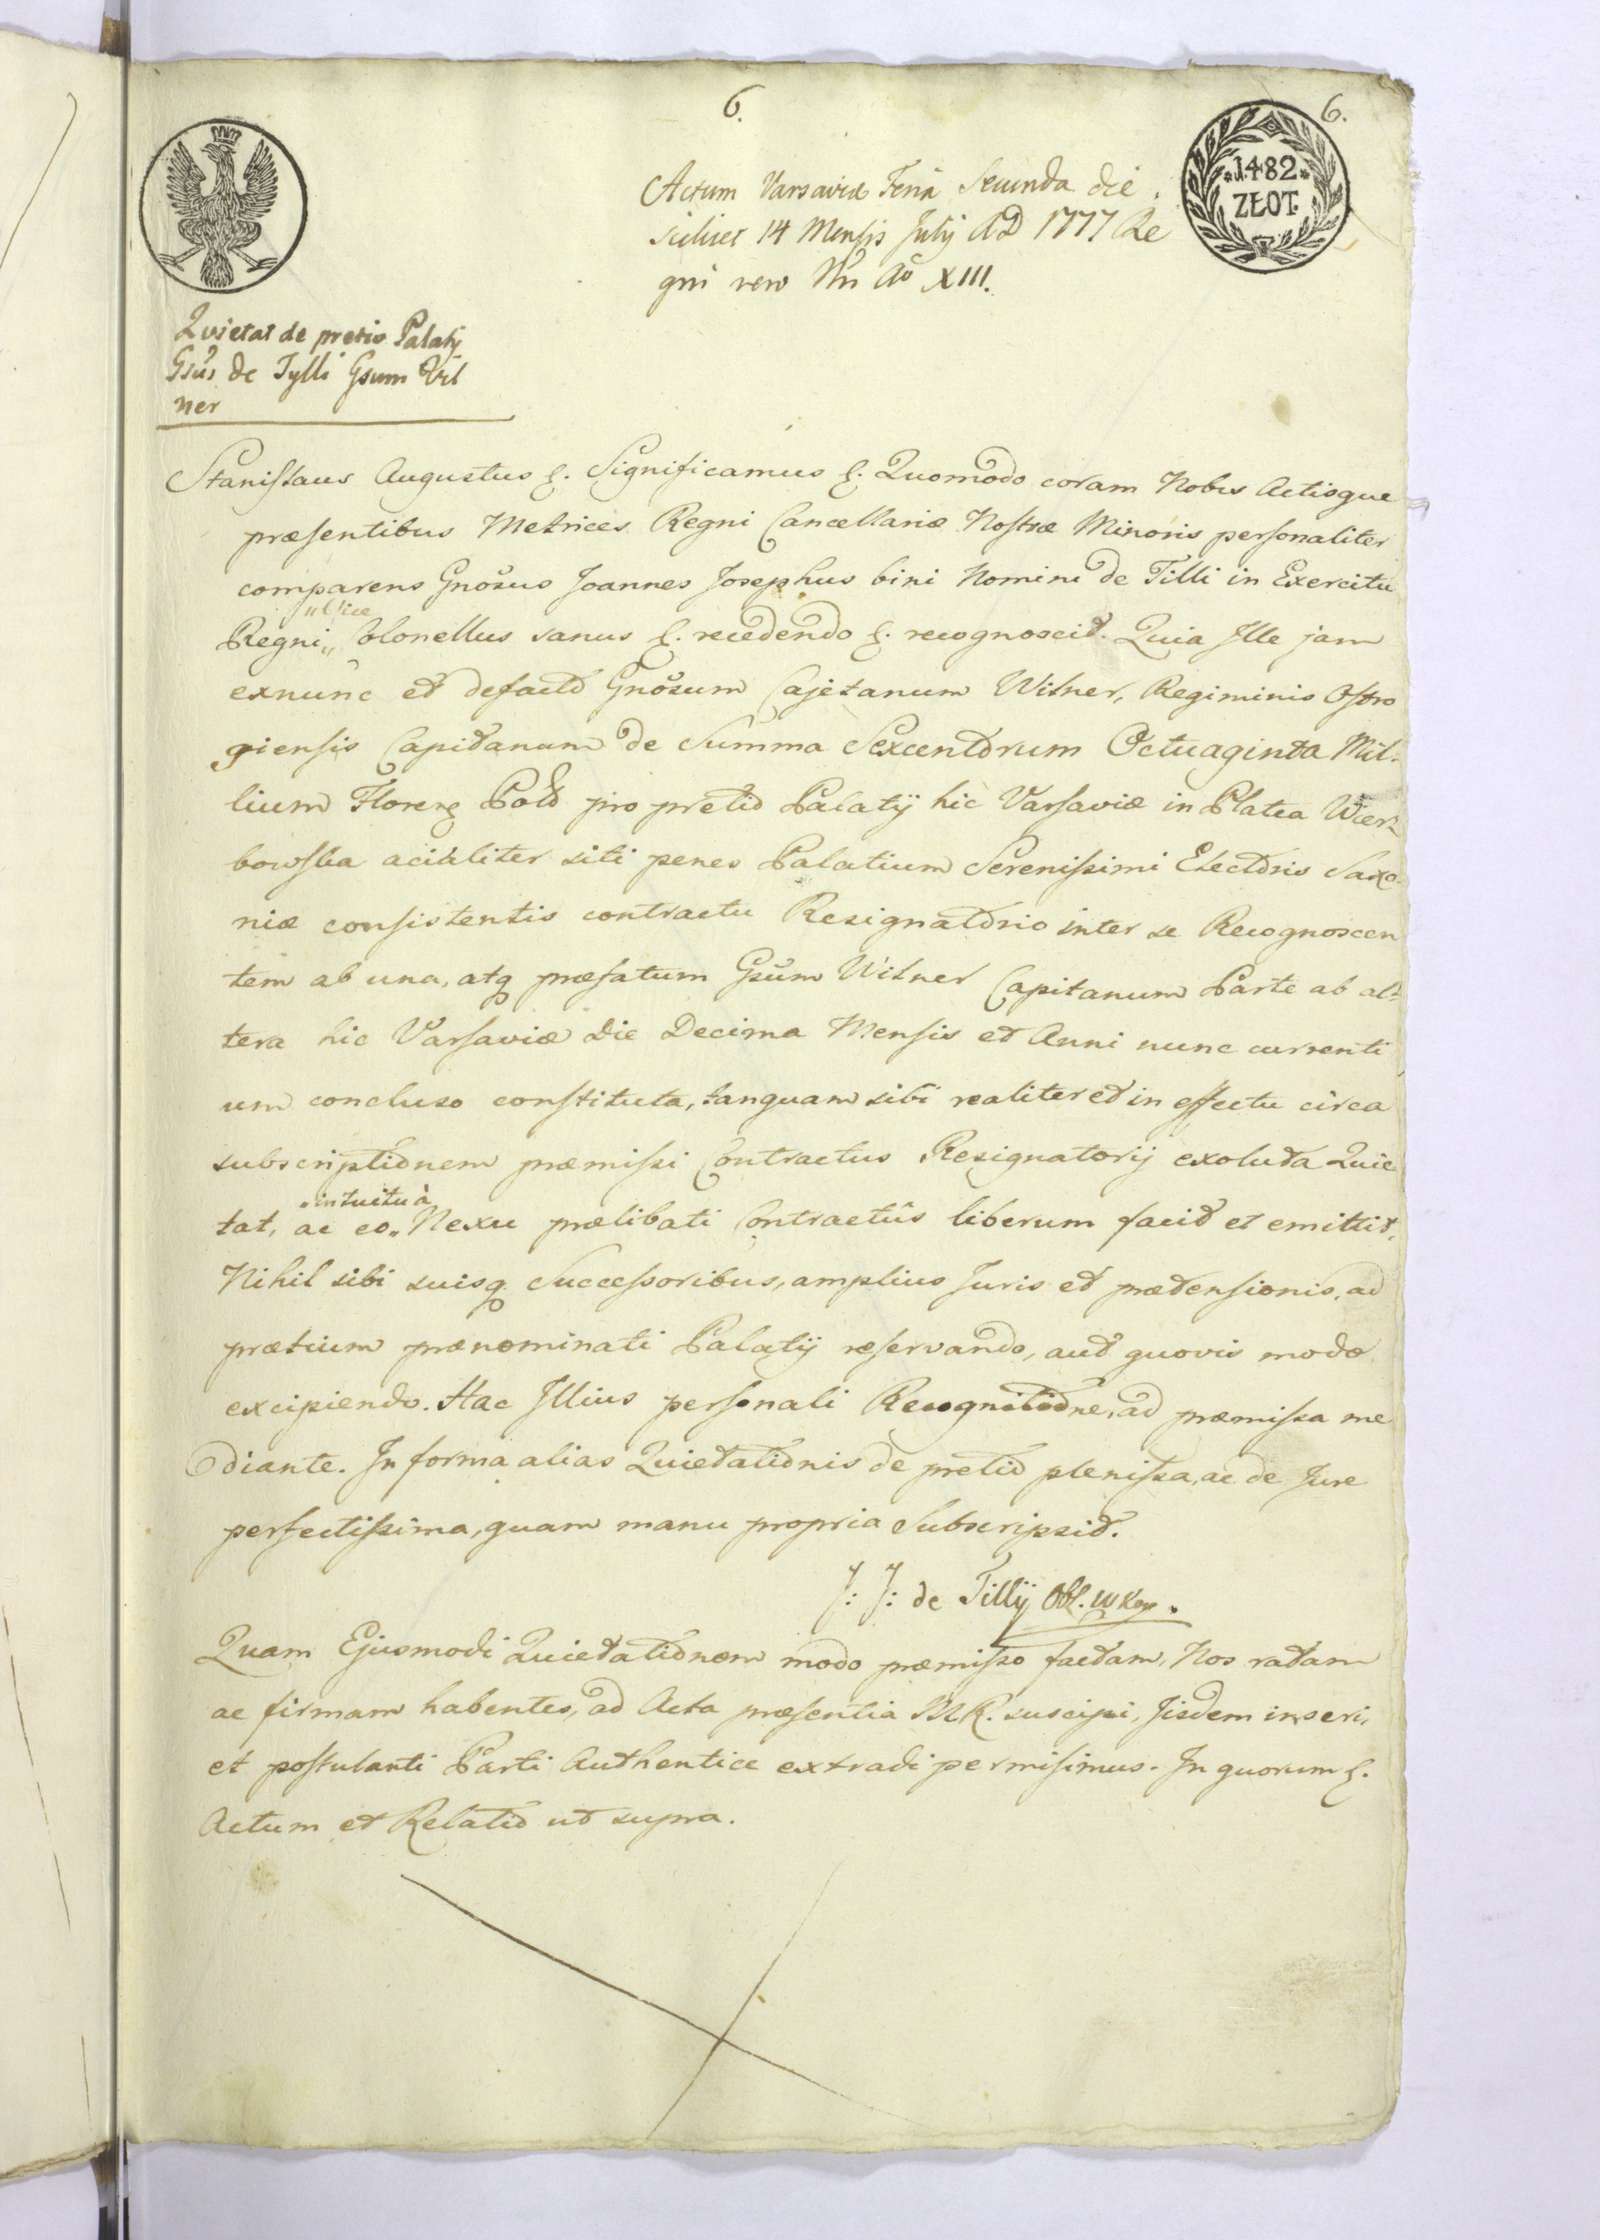 6.
6.
*1482*
ZŁOT.
Actum Varsaviæ Feria Secunda die
scilicet 14 Mensis July AD 1777 Re
gni vero Nri Ao XIII.
Quietat de pretio Palatij
Gsus de Tylli Gsum Vil
ner
Stanislaus Augustus &. Significamus &. Quomodo coram Nobis Actisque
præsentibus Metrices Regni Cancellariæ Nostræ Minoris personaliter
comparens Gnosus Joannes Josephus bini Nomini de Tilli in Exercitu
Regni Colonellus sanus &. recedendo &. recognoscit. Quia Ille jam
exnunc et defacto Gnosum Cajetanum Wilner, Regiminis Ostro
giensis Capitanum de Summa Sexcentorum Octuaginta Mil-
lium Floren Pol pro pretio Palatij hic Varsaviæ in Platea Wier-
bowska acialiter siti penes Palatium Serenissimi Electoris Saxo-
niæ consistentis contractu Resignatorio inter se Recognoscen
tem ab una, atq præfatum Gsum Wilner Capitanum Parte ab al-
tera hic Varsaviæ Die Decima Mensis et Anni nunc currenti
um concluso constituta, tanquam sibi realiter et in effectu circa
subscriptionem præmissi Contractus Resignatorij exoluta Quie
intuitu à
tat, ac eo Nexu prælibati Contractûs liberum facit et emittit,
Nihil sibi suisq Successoribus, amplius Juris et prætensionis, ad
prætium prænominati Palatij reservando, aut quovis modo
excipiendo. Hac Illius personali Recognitione, ad præmissa me
diante. In forma alias Quietationis de pretio plenissa, ac de Jure
perfectissima, quam manu propria Subscripsit.
J: J: de Tillÿ
Quam Ejusmodi Quietationem modo præmisso factam, Nos ratam
ac firmam habentes, ad Acta præsentia MR. suscipi, Iisdem inseri,
et postulanti Parti Authentice extradi permisimus. In quorum &.
Actum et Relatio ut supra.